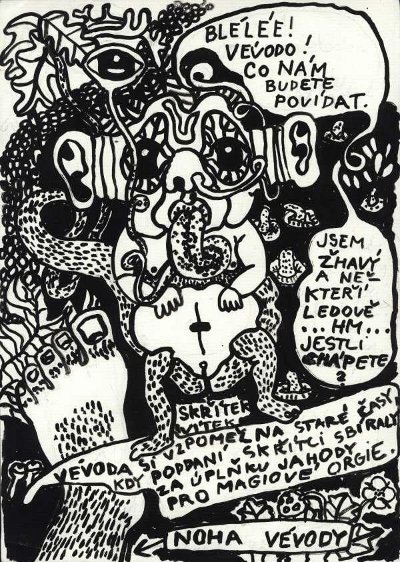 BLÉÉÉE!
VÉVODO!
CO NÁM
BUDETE
POVÍDAT.
JSEM
ŽHAVÝ
A NĚ-
KTEŘÍ
LEDOVĚ
...HM...
JESTLI
CHÁPETE
?
SKŘÍTEK
VÍTEK
VÉVODA SI VZPOMĚL NA STARÉ ČASY,
KDY PODDANÍ SKŘÍTCI SBÍRALY
ZA ÚPLŇKU JAHODY
PRO MAGIOVÉ ORGIE.
NOHA VÉVODY